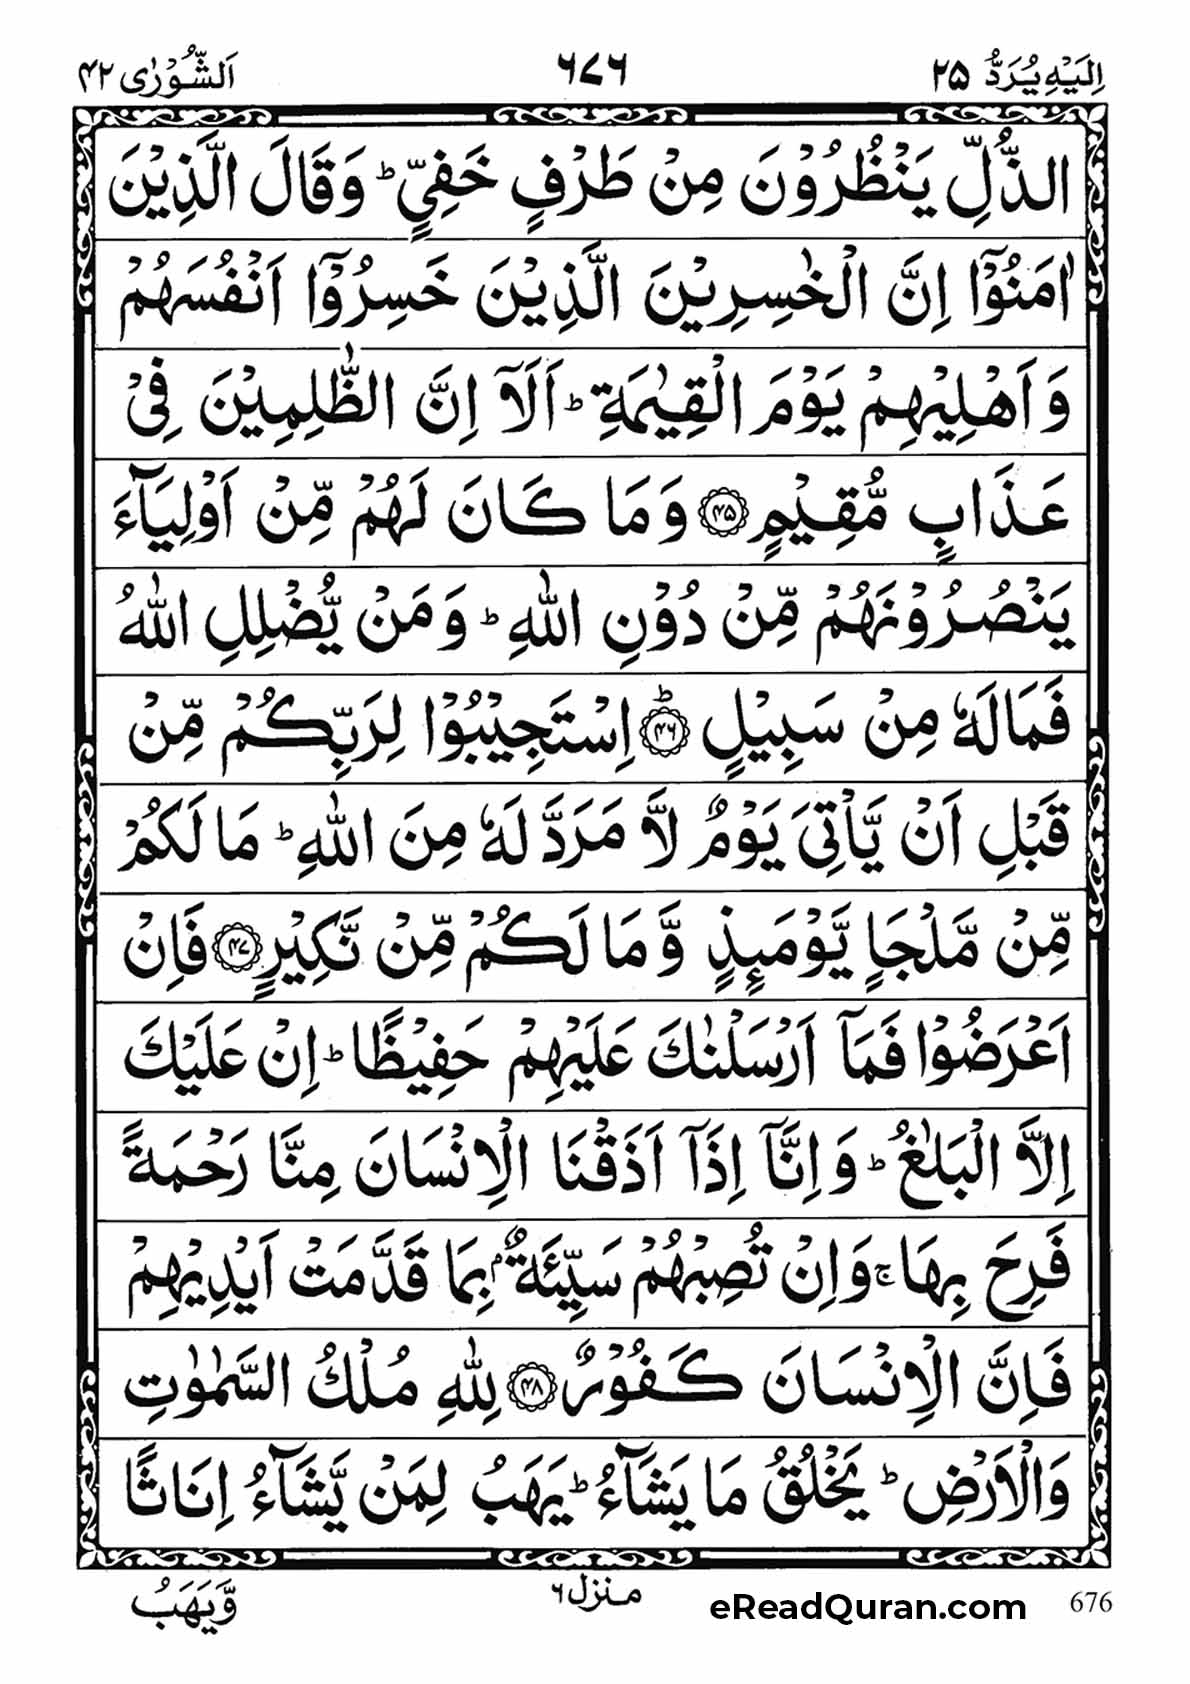 اِلَيْهِ يُرَدُّ ٢٥
٦٧٦
اَلشُّوْرٰى ٤٢
الذُّلِّ يَنْظُرُوْنَ مِنْ طَرْفٍ خَفِيٍّ ؕ وَقَالَ الَّذِيْنَ
اٰمَنُوْۤا اِنَّ الْخٰسِرِيْنَ الَّذِيْنَ خَسِرُوْۤا اَنْفُسَهُمْ
وَاَهْلِيْهِمْ يَوْمَ الْقِيٰمَةِ ؕ اَلَاۤ اِنَّ الظّٰلِمِيْنَ فِيْ
عَذَابٍ مُّقِيْمٍ ﴿۴۵﴾ وَمَا كَانَ لَهُمْ مِّنْ اَوْلِيَآءَ
يَنْصُرُوْنَهُمْ مِّنْ دُوْنِ اللّٰهِ ؕ وَمَنْ يُّضْلِلِ اللّٰهُ
فَمَا لَهٗ مِنْ سَبِيْلٍ ؕ﴿۴۶﴾ اِسْتَجِيْبُوْا لِرَبِّكُمْ مِّنْ
قَبْلِ اَنْ يَّاْتِيَ يَوْمٌ لَّا مَرَدَّ لَهٗ مِنَ اللّٰهِ ؕ مَا لَكُمْ
مِّنْ مَّلْجَاٍ يَّوْمَئِذٍ وَّمَا لَكُمْ مِّنْ نَّكِيْرٍ ﴿۴۷﴾ فَاِنْ
اَعْرَضُوْا فَمَاۤ اَرْسَلْنٰكَ عَلَيْهِمْ حَفِيْظًا ؕ اِنْ عَلَيْكَ
اِلَّا الْبَلٰغُ ؕ وَاِنَّاۤ اِذَاۤ اَذَقْنَا الْاِنْسَانَ مِنَّا رَحْمَةً
فَرِحَ بِهَا ۚ وَاِنْ تُصِبْهُمْ سَيِّئَةٌۢ بِمَا قَدَّمَتْ اَيْدِيْهِمْ
فَاِنَّ الْاِنْسَانَ كَفُوْرٌ ﴿۴۸﴾ لِلّٰهِ مُلْكُ السَّمٰوٰتِ
وَالْاَرْضِ ؕ يَخْلُقُ مَا يَشَآءُ ؕ يَهَبُ لِمَنْ يَّشَآءُ اِنَاثًا
وَّيَهَبُ
منزل ٦
eReadQuran.com
676